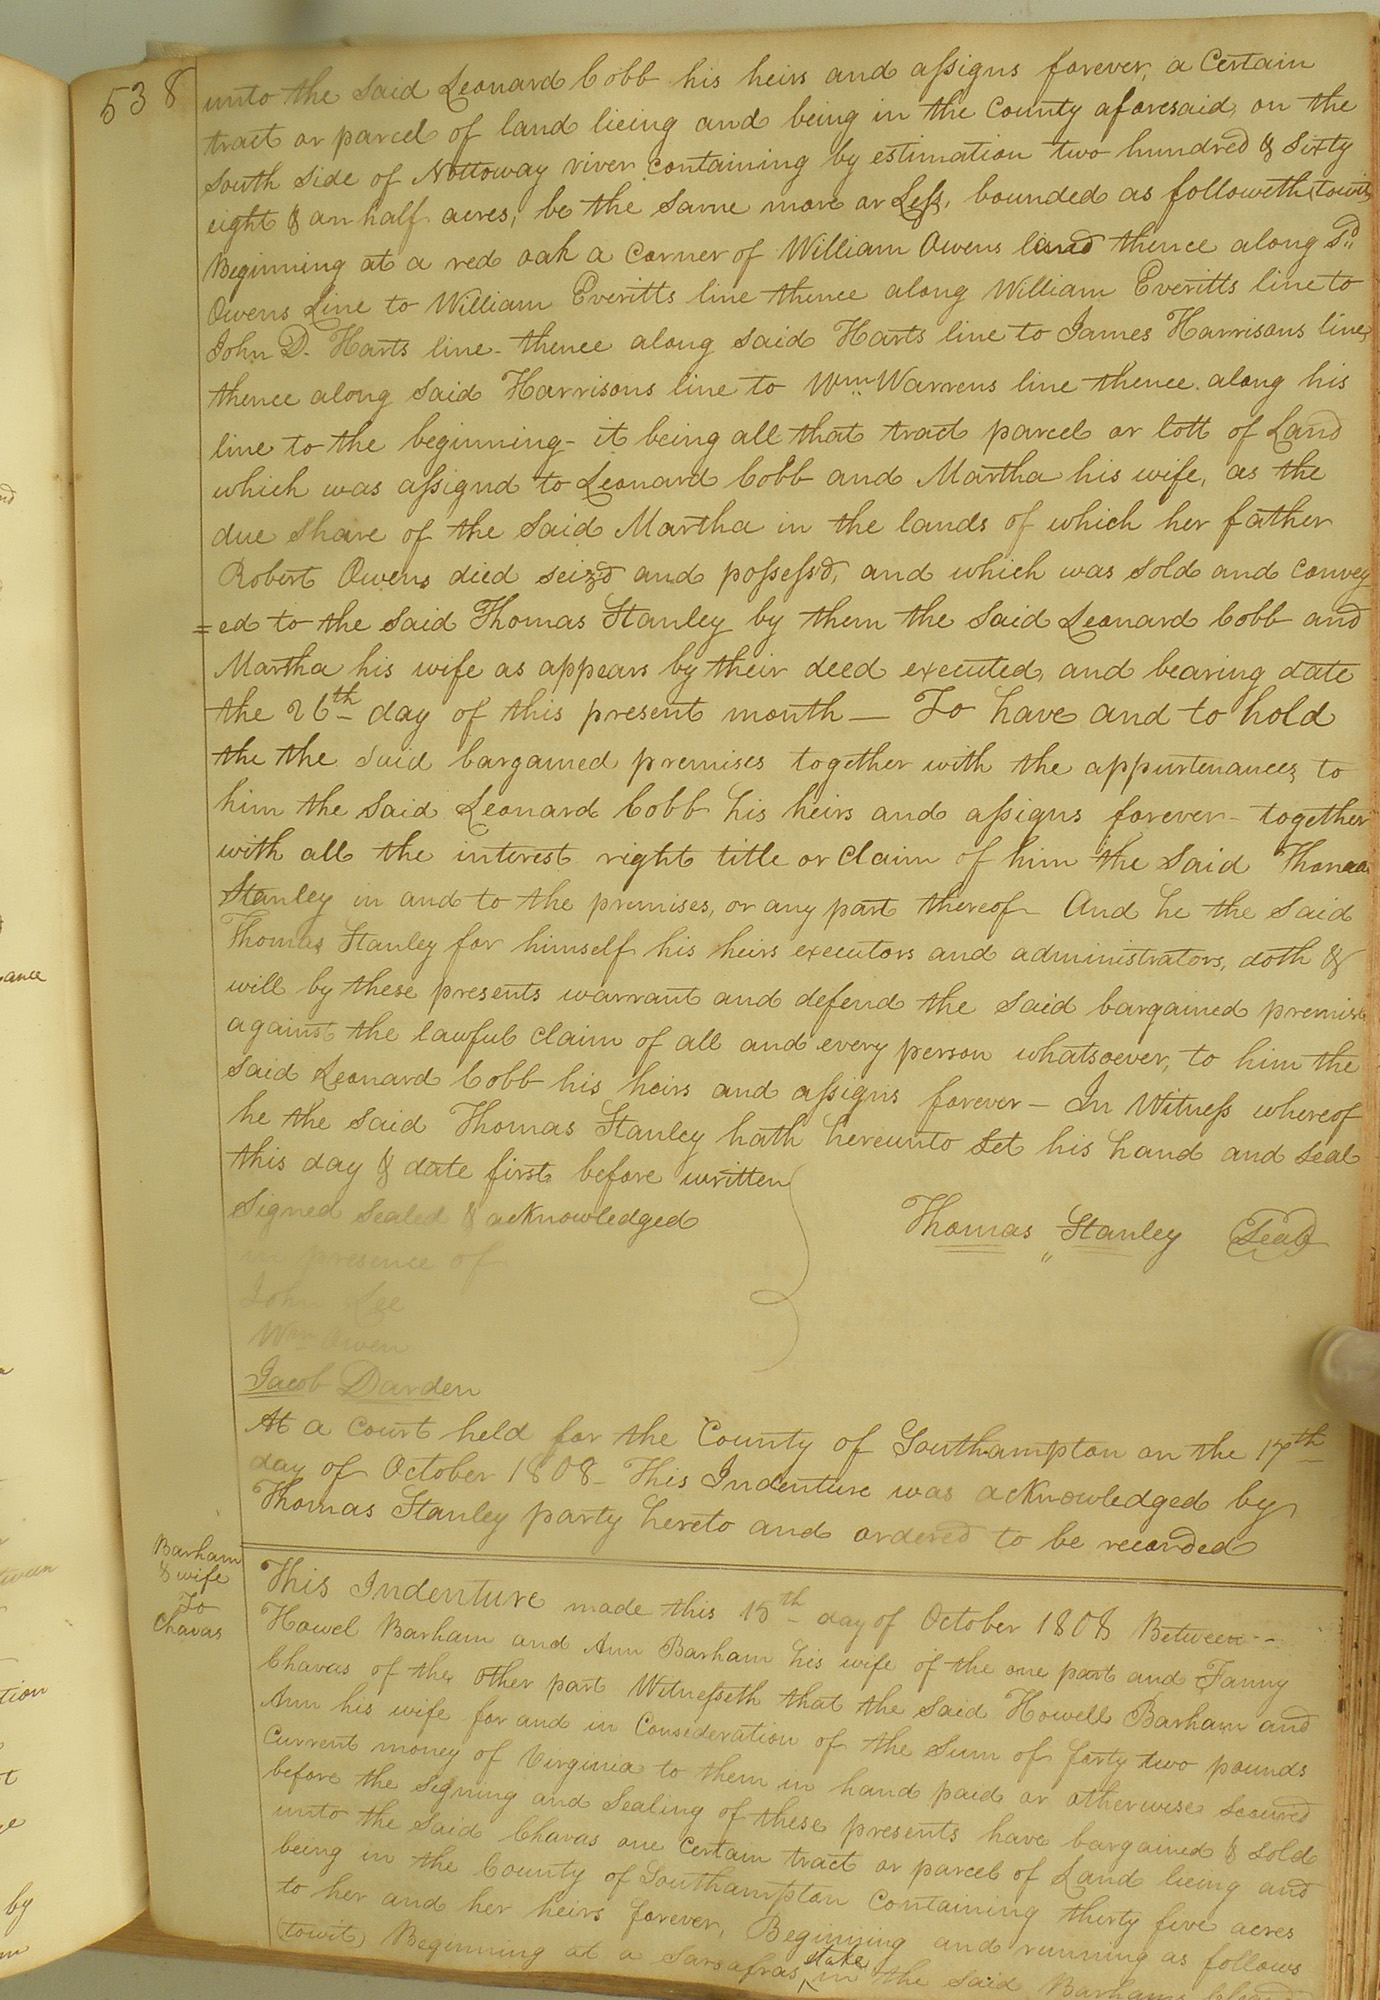 538
unto the said Leonard Cobb his heirs and assigns forever, a Certain
tract or parcel of land lieing and being in the County aforesaid, on the
south side of Nottoway river containing by estimation two hundred & sixty
eight & an half acres, be the same more or Less, bounded as followeth (towit)
Beginning at a red oak a corner of William Owens land thence along Sd.
Owens Line to William Everitts line thence along William Everitts line to
John D. Harts line - thence along said Harts line to James Harrisons line,
thence along said Harrisons line to Wm. Warrens line thence along his
line to the beginning - it being all that tract parcel or lott of Land
which was assignd to Leonard Cobb and Martha his wife, as the
due share of the said Martha in the lands of which her father
Robert Owens died seizd and possess'd, and which was sold and convey
=ed to the said Thomas Stanley by them the said Leonard Cobb and
Martha his wife as appears by their deed executed, and bearing date
the 26th day of this present month — To have and to hold
the the said bargained premises together with the appurtenances, to
him the said Leonard Cobb his heirs and assigns forever - together
with all the interest right title or claim of him the said Thomas
Stanley in and to the premises, or any part thereof - And he the said
Thomas Stanley for himself his heirs executors and administrators, doth &
will by these presents warrant and defend the said bargained premises
against the lawful claim of all and every person whatsoever, to him the
said Leonard Cobb his heirs and assigns forever — In Witness whereof
he the said Thomas Stanley hath hereunto set his hand and seal
this day & date first before written
Signed sealed & acknowledged
in presence of
John Lee
Wm Owen
Jacob Darden
Thomas Stanley Seal
At a court held for the County of Southampton on the 17th
day of October 1808 - This Indenture was acknowledged by
Thomas Stanley party hereto and ordered to be recorded
Barham
& wife
To
Chavas
This Indenture made this 15th day of October 1808 Between
Howel Barham and Ann Barham his wife of the one part and Fanny
Chavas of the other part Witnesseth that the said Howell Barham and
Ann his wife for and in Consideration of the sum of forty two pounds
Current money of Virginia to them in hand paid or otherwise secured
before the signing and sealing of these presents have bargained & sold
unto the said Chavas one certain tract or parcel of Land lieing and
being in the County of Southampton Containing thirty five acres
to her and her heirs forever, Beginning and running as follows
(towit) Beginning at a sarsafras stake in the said Barhams